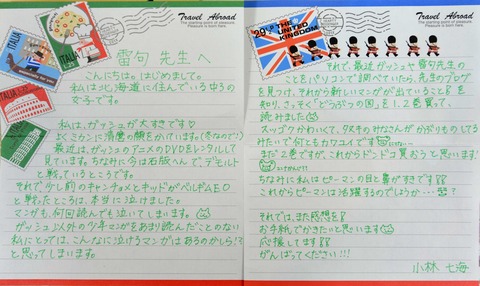 Travel Abroad
The starting point of pleasures.
Pleasure is born here.
ITALIA
ITALIA
雷句 先生 へ
こんにちは。はじめまして。
私は北海道に住んでいる中1の
女子です。
私は、ガッシュが大すきです♡
よくミカンに清麿の顔をかいています。(冬なので!)
最近は、ガッシュのアニメのDVDをレンタルして
見ています。ちなみに今は石版へんで、デモルト
と戦っているところです。
それで、少し前のキャンチョメとキッドがベルギムE.O
と戦ったところは、本当に泣けました。
マンガも、何回読んでも泣いてしまいます。
ガッシュ以外の少年マンガをあまり読んだことのない
私にとっては、こんなに泣けるマンガはあるのかしら!?そ
と思ってしまいます。
Travel Abroad
The starting point of pleasures.
Pleasure is born here.
29
THE UNITED KINGDOM
それで、最近ガッシュや雷句先生の
ことをパソコンで調べていたら、先生のブログ
を見つけ、それから新しいマンガが出ていることを
知り、さっそく「どうぶつの国」を1、2巻買って
読みました
スッゴクかわいくて、タヌキのみなさんがかぶりものしてる
みたいで何ともカワユイです
まだ2巻ですが、これからドンドコ買おうと思います!
ちなみに私はピーマンの目と鼻がすきです
これからピーマンは活躍するのでしょうか…??
それでは、また感想を
お手紙でかきたいと思います
応援してます
がんばってください!!!
小林 七海